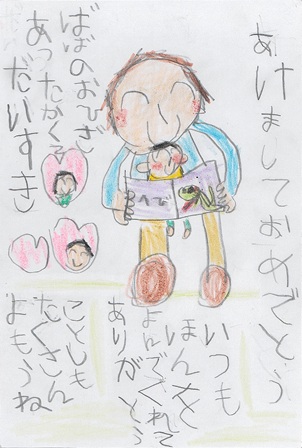 あけましておめでとう
ばばのおひざ
あったかくて
だいすき
へび
いつも
ほんを
よんでくれて
ありがとう
ことしも
たくさん
よもうね